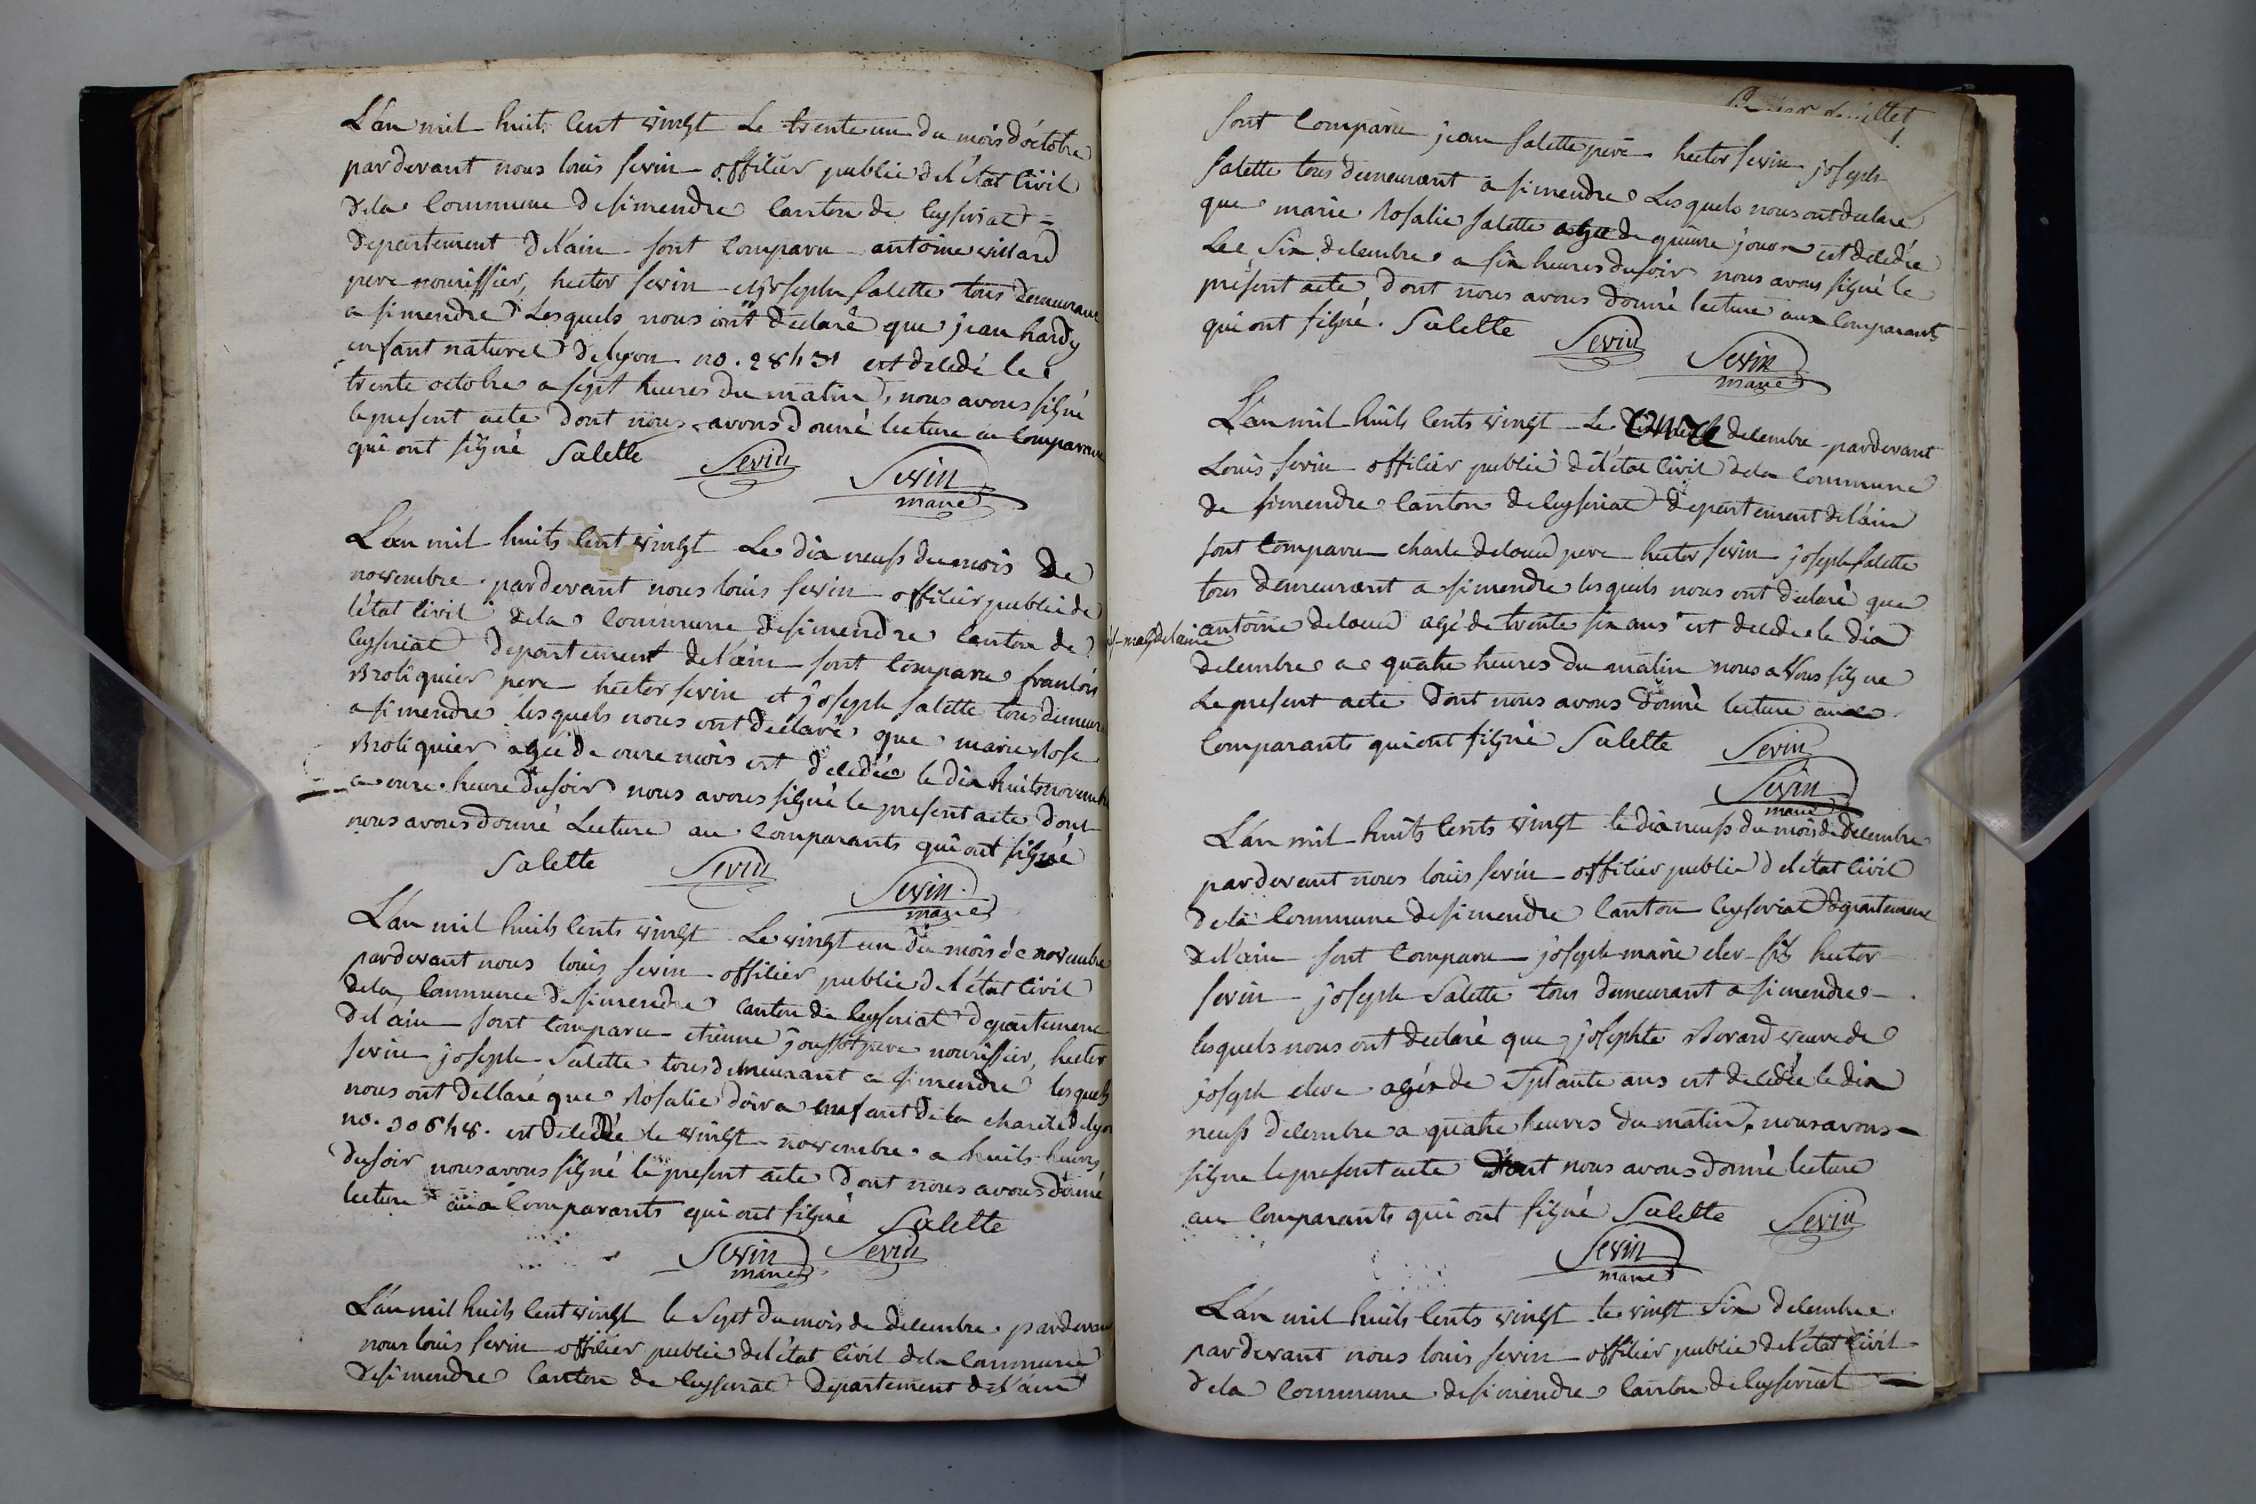 L'an mil huit cent vingt le trente un du mois d'octobre
par devant nous louis sevin officier public de l'état civil
de la commune de simendre canton de ceyseriat
departement de l'ain sont comparu antoine villard
pere nourissier, hector sevin et joseph salette tous demeurant
a simendre lesquels nous ont declaré que jean hardy
enfant naturel de lyon no. 28431 est decedé le
trente octobre a sept heures du matin, nous avons signé
le present acte dont nous avons donné lecture au comparant
qui ont signé Salette Sevin Sevin
maire
L'an mil huits cent vingt le dix neuf du mois de
novembre par devant nous louis sevin officier public de
l'état civil de la commune de simendre canton de
ceyseriat departement de l'ain sont comparu francois
Broliquier pere hector sevin et joseph salette tous demeurant
a simendre lesquels nous ont declaré que marie Rose
Broliquier agée de onze mois est decedée le dix huits novembre
a onze heure du soir nous avons signé le present acte dont
nous avons donné lecture au comparants qui ont signé
Salette Sevin Sevin
maire
L'an mil huits cents vingt le vingt un du mois de novembre
par devant nous louis sevin officier public de l'état civil
de la commune de simendre canton de ceyseriat departement
de l'ain sont comparu etienne joussot pere nourissier, hector
sevin joseph Salette tous demeurant a simendre lesquels
nous ont declaré que Rosalie enfant de la charité de lyon
no. 30648. est decedée le vingt novembre a huits heures
du soir nous avons signé le present acte dont nous avons donné
lecture aux comparants qui ont signé Salette
Sevin Sevin
maire
L'an mil huits cent vingt le sept du mois de decembre par devant
nous louis sevin officier public de l'état civil de la commune
de simendre canton de ceyseriat departement de l'ain
sont comparu jean salette pere hector sevin joseph
salette tous demeurant a simendre lesquels nous ont declaré
que marie Rosalie salette agée de quinze jours est decedée
le six decembre a six heures du soir nous avons signé le
present acte dont nous avons donné lecture aux comparants
qui ont signé. Salette Sevin Sevin
maire
L'an mil huits cents vingt le onze decembre par devant
Louis sevin officier public de l'état civil de la commune
de simendre canton de ceyseriat departement de l'ain
sont comparu charle deloeud pere hector sevin joseph salette
tous demeurant a simendre lesquels nous ont declaré que
antoine delaeud agé de trente six ans est decedé le dix
decembre a quatre heures du matin nous avons signe
le present acte dont nous avons donné lecture aux
comparants qui ont signé Salette Sevin
Sevin
maire
L'an mil huits cents vingt le dix neuf du mois de decembre
par devant nous louis sevin officier public de l'état civil
de la commune de simendre canton ceyseriat departement
de l'ain sont comparu joseph marie cler fils hector
sevin joseph Salette tous demeurant a simendre
lesquels nous ont declaré que josephte Bovard veuve de
joseph clere agée de septante ans est decedée le dix
neuf decembre a quatre heures du matin, nous avons
signe le present acte dont nous avons donné lecture
au comparants qui ont signé Salette Sevin
Sevin
maire
L'an mil huits cents vingt le vingt six decembre
par devant nous louis sevin officier public de l'état civil
de la commune de simendre canton de ceyseriat